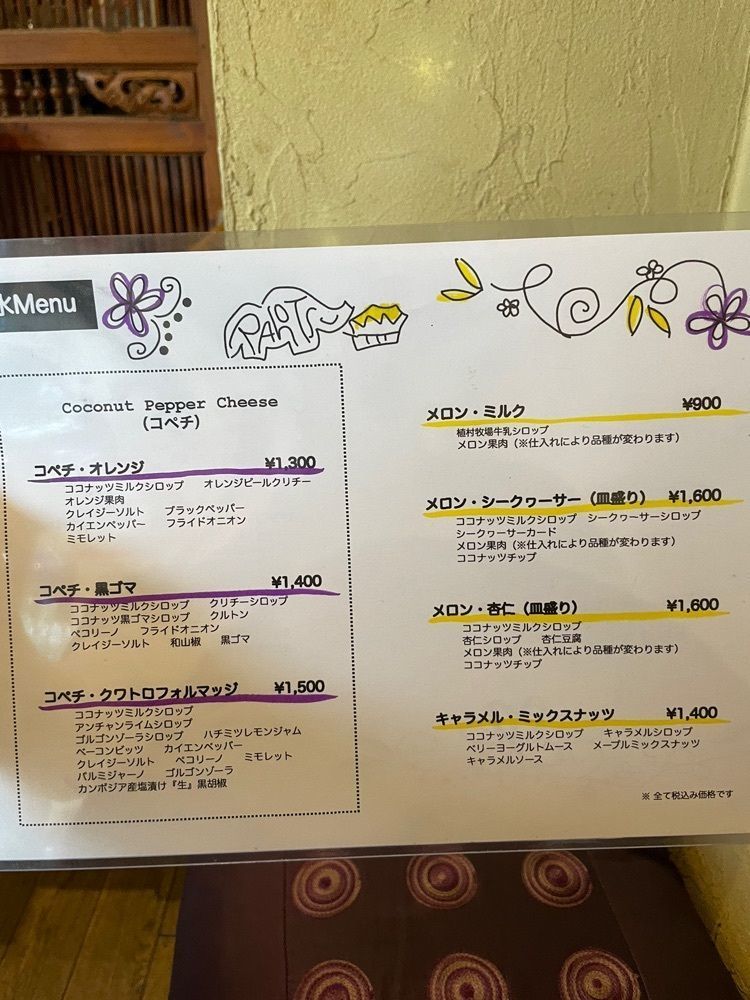 kMenu
PART
Coconut Pepper Cheese
(コペチ)
コペチ・オレンジ ¥1,300
ココナッツミルクシロップ オレンジピールクリチー
オレンジ果肉
クレイジーソルト ブラックペッパー
カイエンペッパー フライドオニオン
ミモレット
コペチ・黒ゴマ ¥1,400
ココナッツミルクシロップ クリチーシロップ
ココナッツ黒ゴマシロップ クルトン
ペコリーノ フライドオニオン
クレイジーソルト 和山椒 黒ゴマ
コペチ・クワトロフォルマッジ ¥1,500
ココナッツミルクシロップ
アンチャンライムシロップ
ゴルゴンゾーラシロップ ハチミツレモンジャム
ベーコンビッツ カイエンペッパー
クレイジーソルト ペコリーノ ミモレット
パルミジャーノ ゴルゴンゾーラ
カンボジア産塩漬け『生』黒胡椒
メロン・ミルク ¥900
植村牧場牛乳シロップ
メロン果肉（※仕入れにより品種が変わります）
メロン・シークヮーサー（皿盛り） ¥1,600
ココナッツミルクシロップ シークヮーサーシロップ
シークヮーサーカード
メロン果肉（※仕入れにより品種が変わります）
ココナッツチップ
メロン・杏仁（皿盛り） ¥1,600
ココナッツミルクシロップ
杏仁シロップ 杏仁豆腐
メロン果肉（※仕入れにより品種が変わります）
ココナッツチップ
キャラメル・ミックスナッツ ¥1,400
ココナッツミルクシロップ キャラメルシロップ
ベリーヨーグルトムース メープルミックスナッツ
キャラメルソース
※ 全て税込み価格です